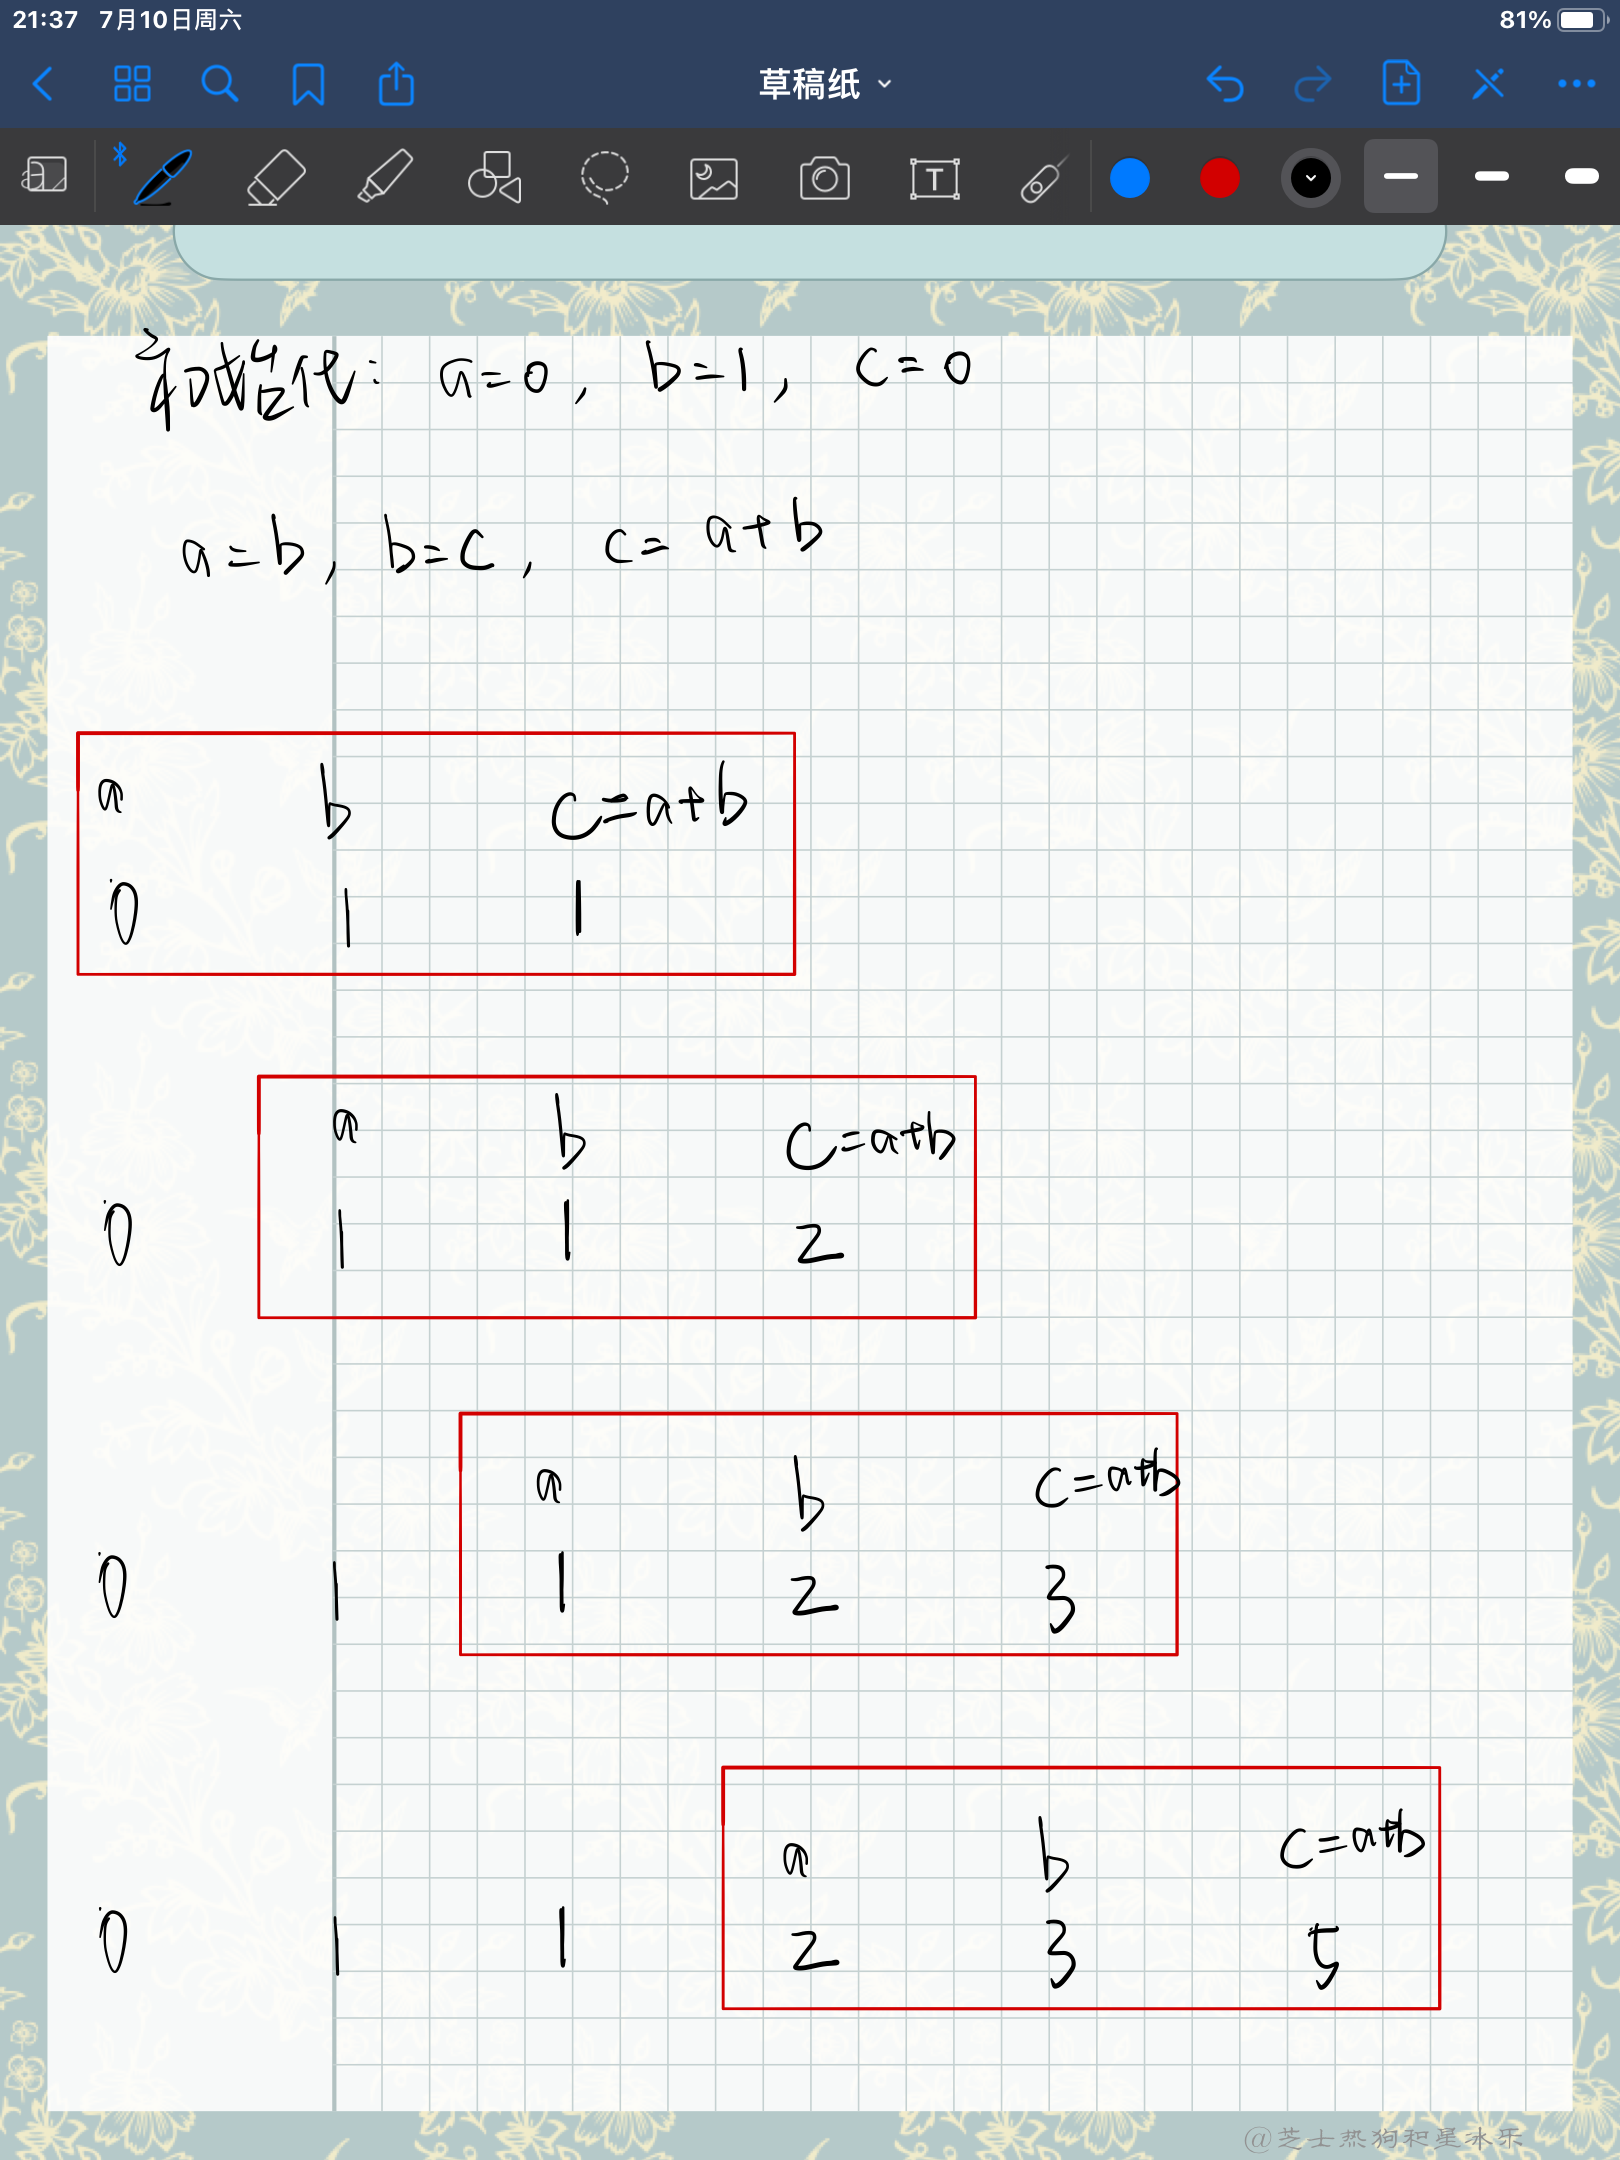 21:37 7月10日周六 81%
草稿纸
T
a=0, b=1, c=0
a=b, b=c, c= a+b
a b c=a+b
0 1 1
a b c=a+b
0 1 1 2
a b c=a+b
0 1 1 2 3
a b c=a+b
0 1 1 2 3 5
@芝士热狗和星冰乐